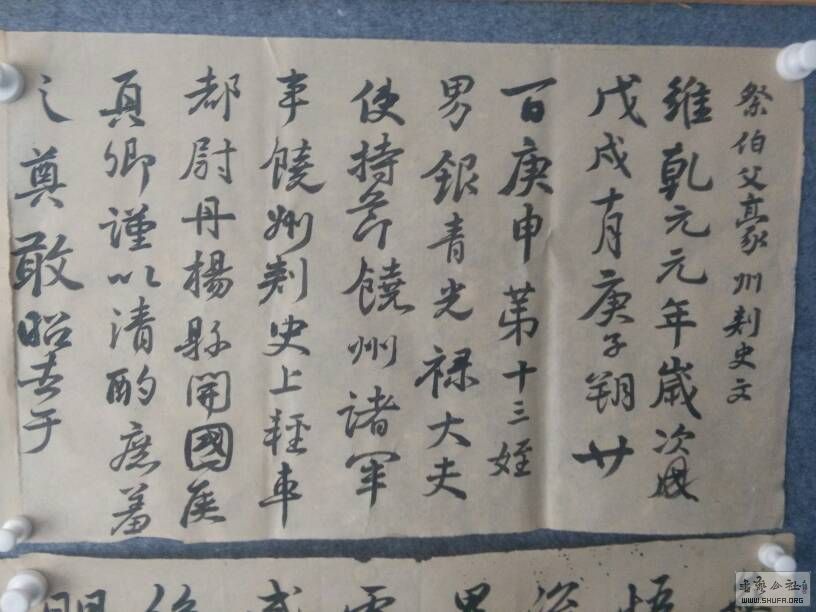 祭伯父豪州刺史文
維乾元元年歲次
戊戌十月庚子朔廿
一日庚申苐十三姪
男銀青光祿大夫
使持節饒州諸軍
事饒州刺史上輕車
都尉丹楊縣開國侯
真卿謹以清酌庶羞
之奠敢昭告于
书法公社
WWW.SHUFA.ORG